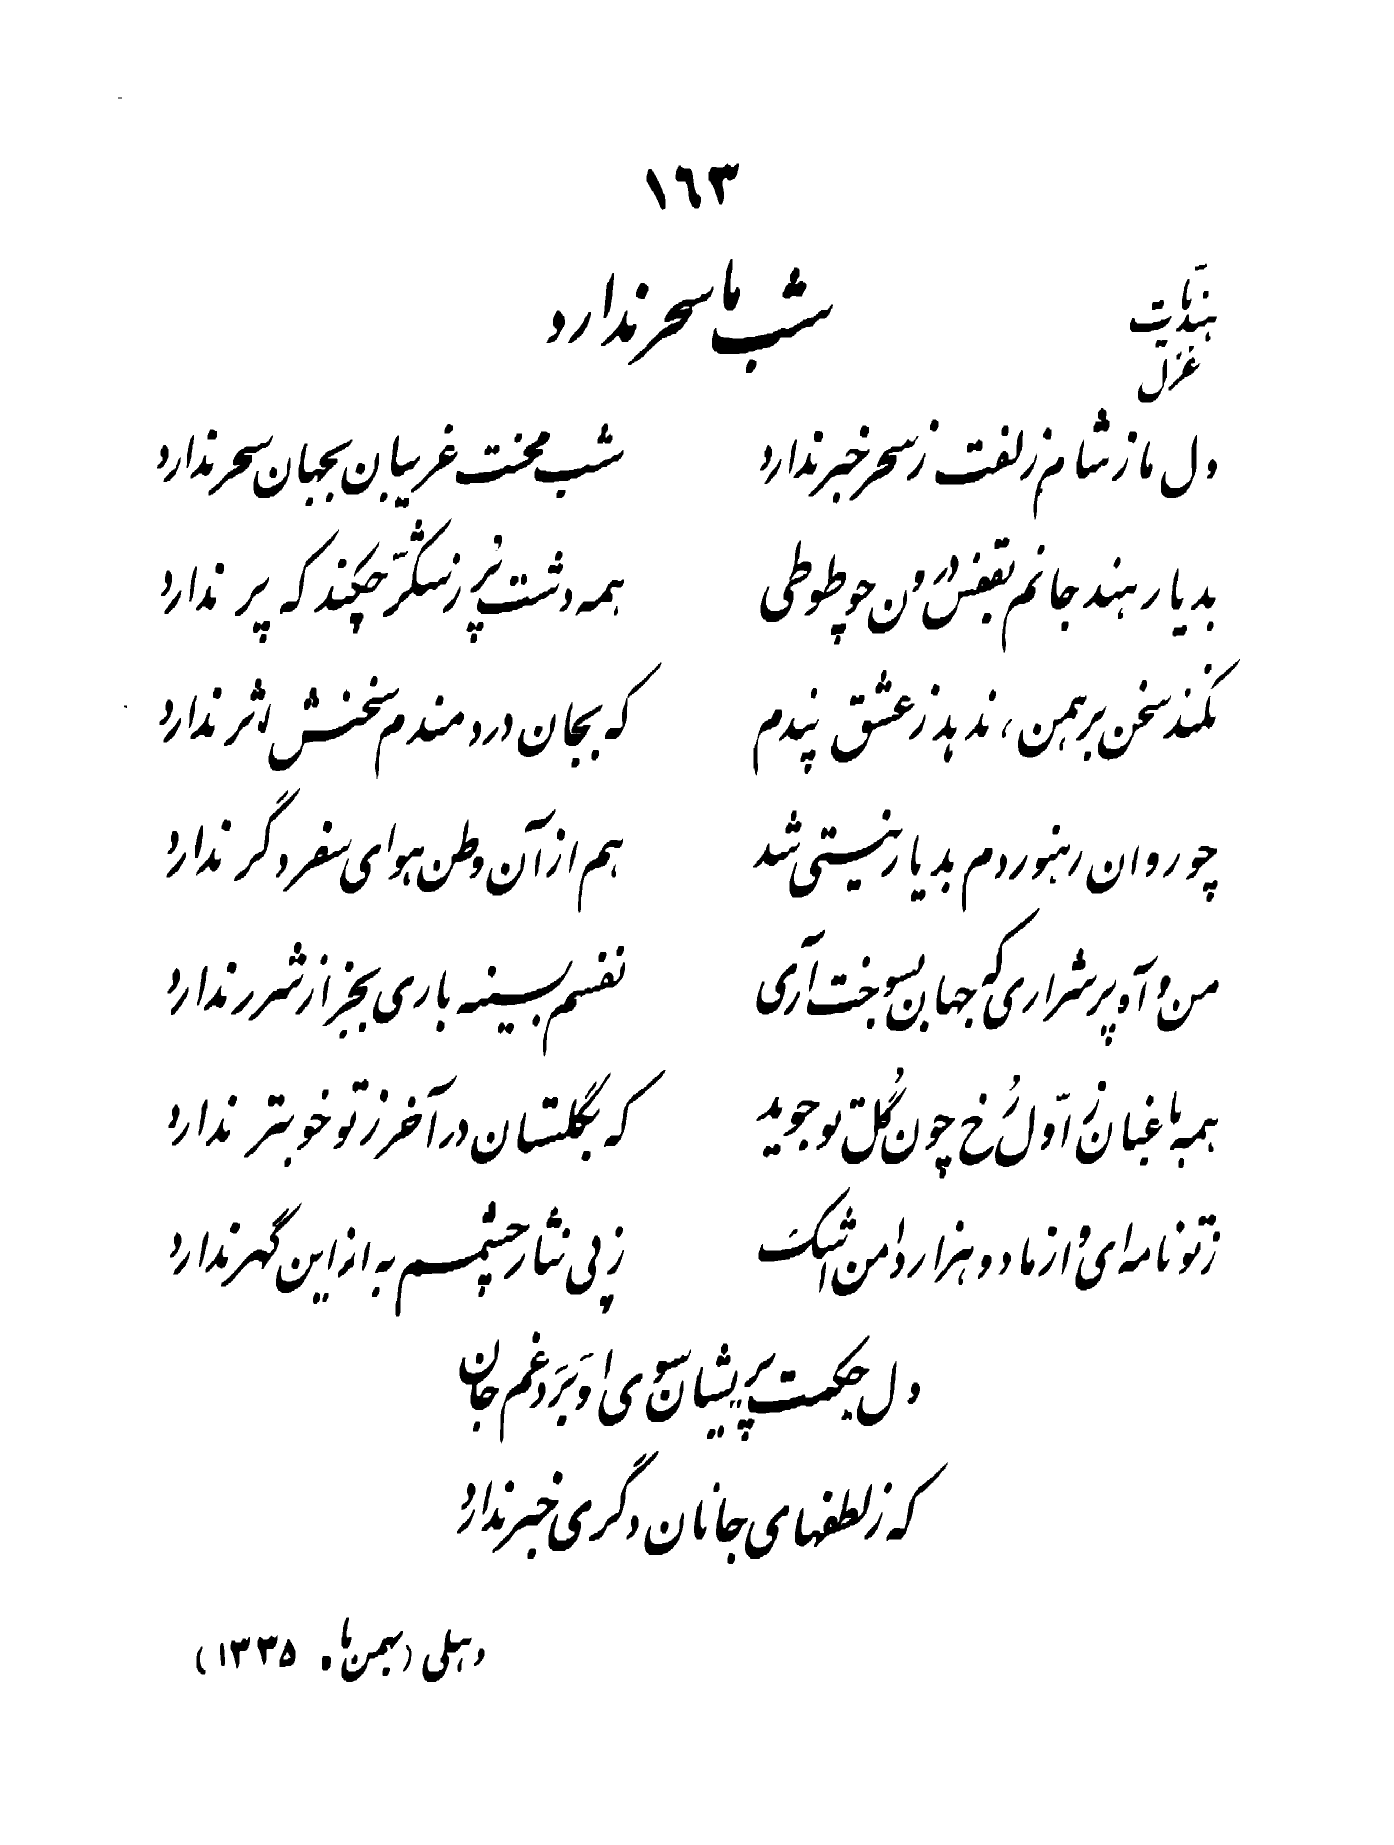 ١٦٣
هندیات
شب ما سحر ندارد
غزل
دل ما ز شام زلفت ز سحر خبر ندارد شب محنت غریبان بجهان سحر ندارد
بدیار هند جانم بقفس درون چو طوطی همه دشت پُر ز شکّر چکند که پر ندارد
نکند سخن برهمن، ندهد ز عشق پندم که بجان دردمندم سخنش اثر ندارد
چو روان رهنوردم بدیار نیستی شد هم از آن وطن هوای سفر دگر ندارد
من و آه پر شراری که جهان بسوخت آری نفسم بسینه باری بجز از شرر ندارد
همه باغبان ز اوّل رُخ چون گُل تو جوید که بگلستان در آخر ز تو خوبتر ندارد
ز تو نامه‌ای و از ما دو هزار دامن اشک ز پی نثار چشمم به از این گهر ندارد
دل حکمت پریشان سوی او بَرَد غم جان
که ز لطفهای جانان دگری خبر ندارد
دهلی (بهمن ماه ۱۳۳۵)